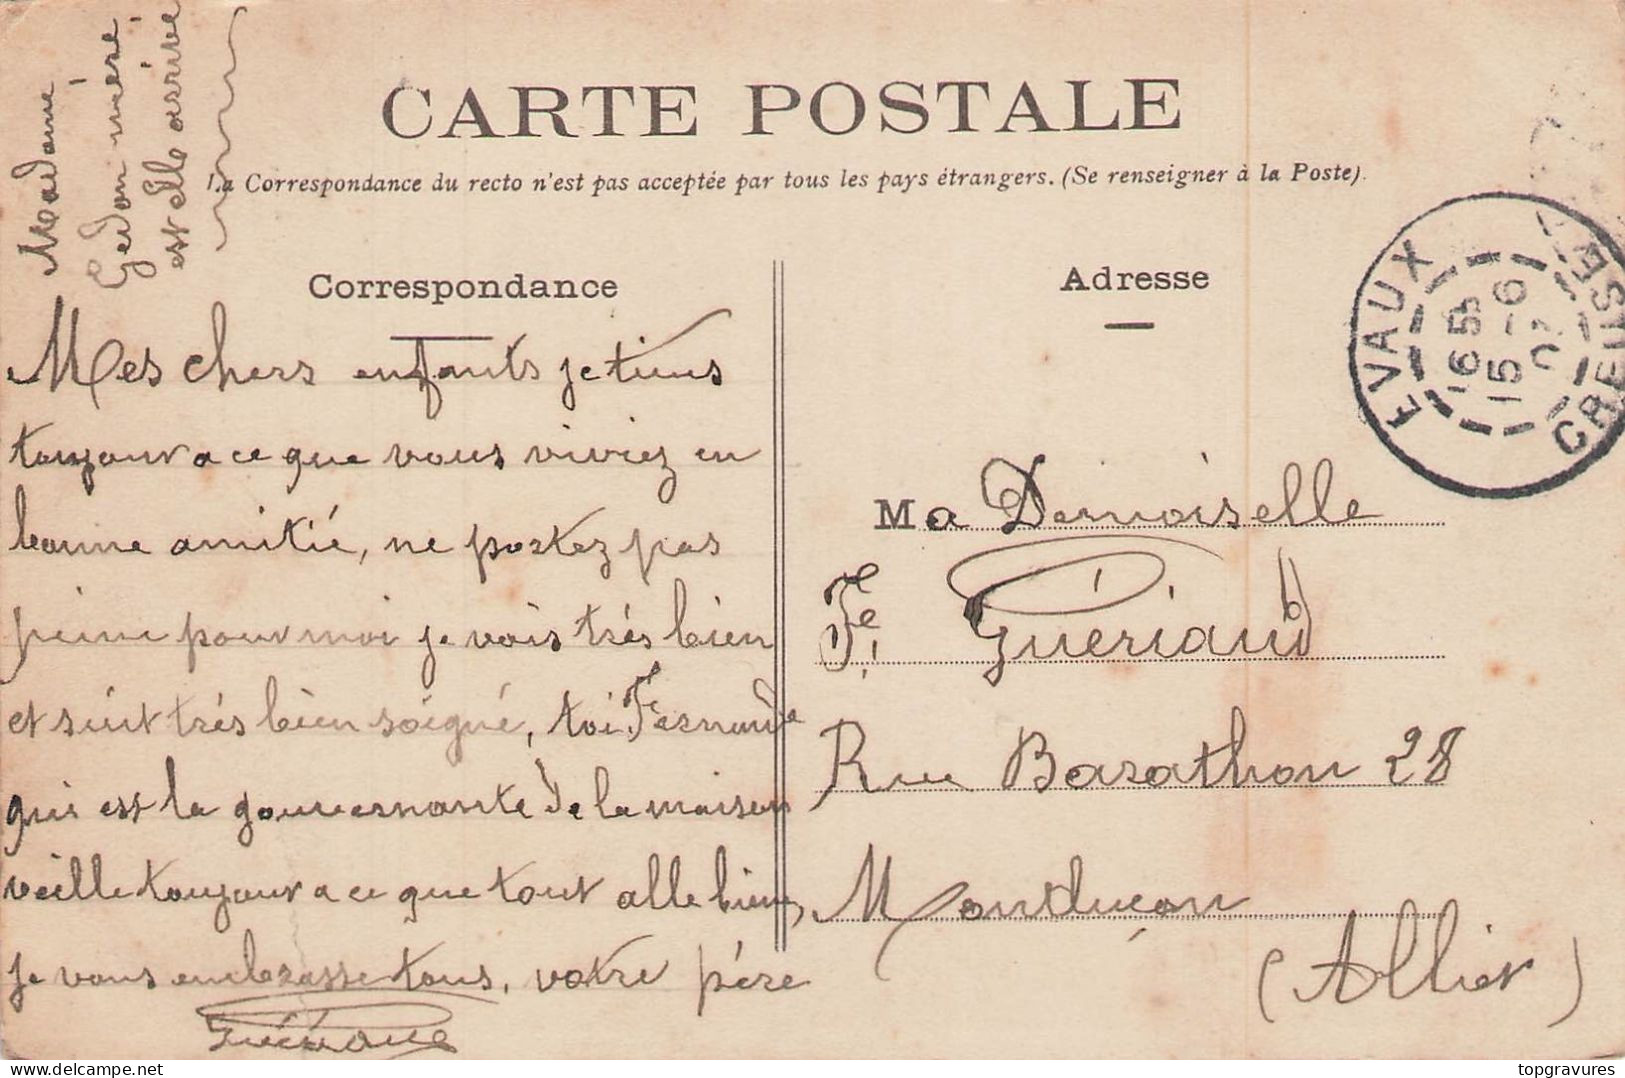 Madame
Gedon mère
est elle arrivé
CARTE POSTALE
La Correspondance du recto n'est pas acceptée par tous les pays étrangers. (Se renseigner à la Poste).
Correspondance
Mes chers enfants je tiens
toujour a ce que vous viviez en
bonne amitié, ne portez pas
peine pour moi je vois très bien
et suit très bien soigné, toi Fernande
qui est la gouvernante de la maison
veille toujour a ce que tout alle bien,
je vous embrasse tous, votre père
Guériaud
Adresse
EVAUX
CREUSE
16 55
15 -6
07
Ma Demoiselle
Fe. Guériaud
Rue Barathon 28
Montluçon
(Allier)
topgravures